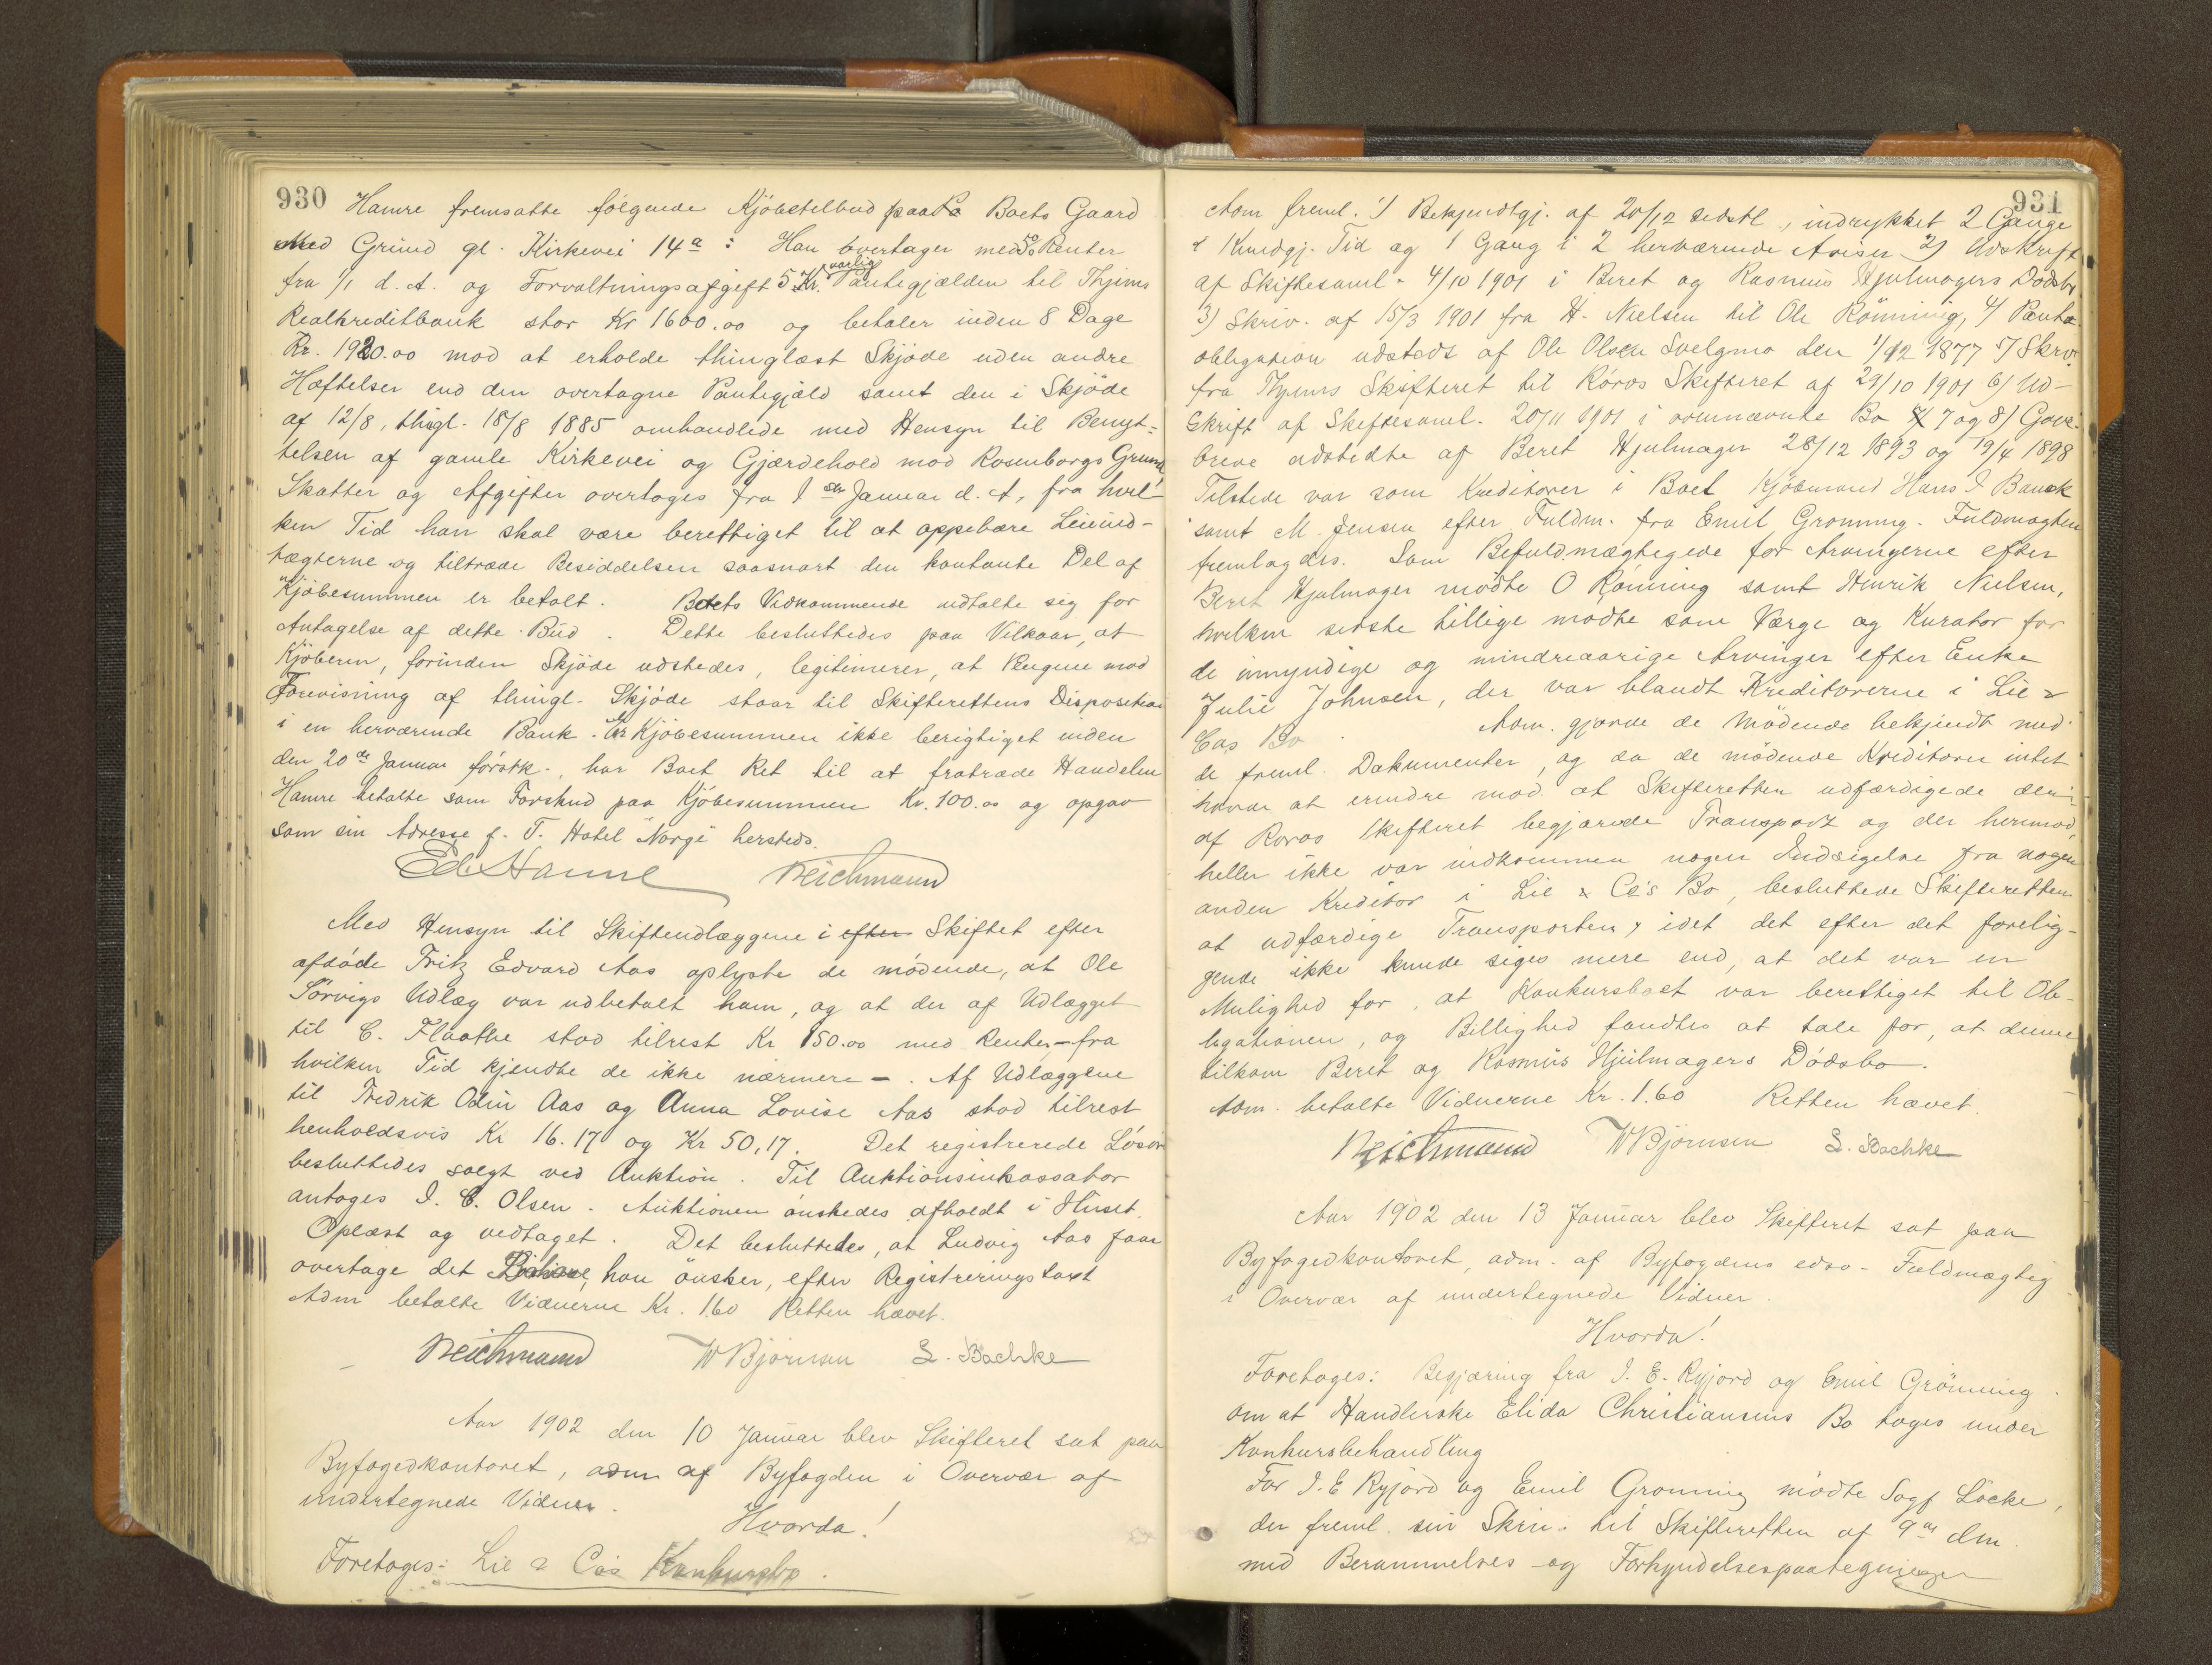 930
Hamre fremsatte følgende Kjøbstelbud paa Boets Gaard
med Grund gl. Kirkevei 14a: Han overtager med Renter
fra 1/1 d. A. og Forvaltningsafgift 5 Kr. varlig Pantegjælden til Thjems
Realkreditbank stor Kr 1600.00 og betaler inden 8 Dage
Kr. 1920.00 mod at erholde thinglæst Skjøde uden andre
Hæftelser end den overtagne Pantegjæld samt den i Skjøde
af 12/8, thgl. 18/8 1885 omhandlede med Hensyn til Benyt-
telsen af gamle Kirkevei og Gjærdehold mod Rosenborgs Grund
Skatter og Afgifter overtages fra 1ste Januar d. A, fra hvil-
ken Tid han skal være berettiget til at oppebære Leieind-
tægterne og tiltræde Besiddelsen saasnart den kontante Del af
Kjøbesummen er betalt. Boets Vedkommende udtalte sig for
Antagelse af dette Bud. Dette besluttedes paa Vilkaar, at
Kjøberen, forinden Skjøde udstedes, legitimerer, at Pengene mod
Forevisning af thingl. Skjøde staar til Skifterettens Disposition
i en herværende Bank. Er Kjøbesummen ikke berigtiget inden
den 20de Januar førstk., har Boet Ret til at fratræde Handelen
Hamre betalte som Forskud paa Kjøbesummen Kr. 100.00 og opgav
som sin Adresse f. T. Hotel Norge hersteds.
Ed. Hamre Reichmann
Med Hensyn til Skifteudlæggene i efter Skiftet efter
afdøde Fritz Edvard Aas oplyste de mødende, at Ole
Sørvigs Udlæg var udbetalt ham, og at der af Udlægget
til C. Flaathe stod tilrest Kr 150.00 med Renter - fra
hvilken Tid kjendte de ikke nærmere -. Af Udlæggene
til Fredrik Odin Aas og Anna Lovise Aas stod tilrest
henholdsvis Kr 16.17 og Kr 50,17. Det registrerede Løsøre
besluttedes solgt ved Auktion. Til Auktionsinkassator
antoges I. C. Olsen. Auktionen ønskedes afholdt i Huset.
Oplæst og vedtaget. Det besluttedes, at Ludvig Aas faar
overtage det han ønsker, efter Registreringstaxt
Adm betalte Vidnerne Kr. 1.60 Retten hævet.
Reichmann W Bjørnsen L. Bachke
Aar 1902 den 10 Januar blev Skifteret sat paa
Byfogedkontoret, adm af Byfogden i Overvær af
undertegnede Vidner.
Hvorda!
Foretages: Lie & Co's Konkursbo.
931
Adm freml. 1) Bekjendtgj. af 20/12 sidstl., indrykket 2 Gange
i Kundgj. Tid og 1 Gang i 2 herværende Aviser 2) Udskrift
af Skiftesaml. 4/10 1901 i Beret og Rasmus Hjulmagers Dødsbo
3) Skriv. af 15/3 1901 fra H. Nielsen til Ole Rønning, 4) Pante-
obligation udstedt af Ole Olsen Svelgmo den 1/12 1877 5) Skriv.
fra Thjems Skifteret til Røros Skifteret af 29/10 1901 6) Ud-
skrift af Skiftesaml. 20/11 1901 i ovennævnte Bo 7 og 8) Gave-
breve udstedte af Beret Hjulmager 28/12 1893 og 19/4 1898
Tilstede var som Kreditorer i Boet Kjøbmand Hans I Bauck
samt M. Jensen efter Fuldm. fra Emil Grønning. Fuldmagten
fremlagdes. Som Befuldmægtigede for Arvingerne efter
Beret Hjulmager mødte O Rønning samt Henrik Nielsen,
hvilken sidste tillige mødte som Værge og Kurator for
de umyndige og mindreaarige Arvinger efter Enke
Julie Johnsen, der var blandt Kreditorerne i Lie &
Cos Bo Adm. gjorde de Mødende bekjendt med
de freml. Dokumenter, og da de mødende Kreditorer intet
havde at erindre mod at Skifteretten udfærdigede den
af Røros Skifteret begjærede Transport og der herimod
heller ikke var indkommen nogen Indsigelse fra nogen
anden Kreditor i Lie & Co's Bo, besluttede Skifteretten
at udfærdige Transporten, idet det efter det forelig-
gende ikke kunde siges mere end, at det var en
Mulighed for, at Konkursboet var berettiget til Ob-
ligationen, og Billighed fandtes at tale for, at denne
tilkom Beret og Rasmus Hjulmagers Dødsbo.
Adm. betalte Vidnerne Kr. 1.60 Retten hævet.
Reichmann W Bjørnsen L. Bachke
Aar 1902 den 13 Januar blev Skifteret sat paa
Byfogedkontoret, adm. af Byfogdens edsv. Fuldmægtig
i Overvær af undertegnede Vidner.
Hvorda!
Foretages: Begjæring fra I. E. Ryjord og Emil Grønning
om at Handlerske Elida Christiansens Bo tages under
Konkursbehandling
For I. E Ryjord og Emil Grønning mødte Sagf Løcke,
der freml. sin Skriv. til Skifteretten af 9de dm.
med Berammelses og Forkyndelsespaategninger